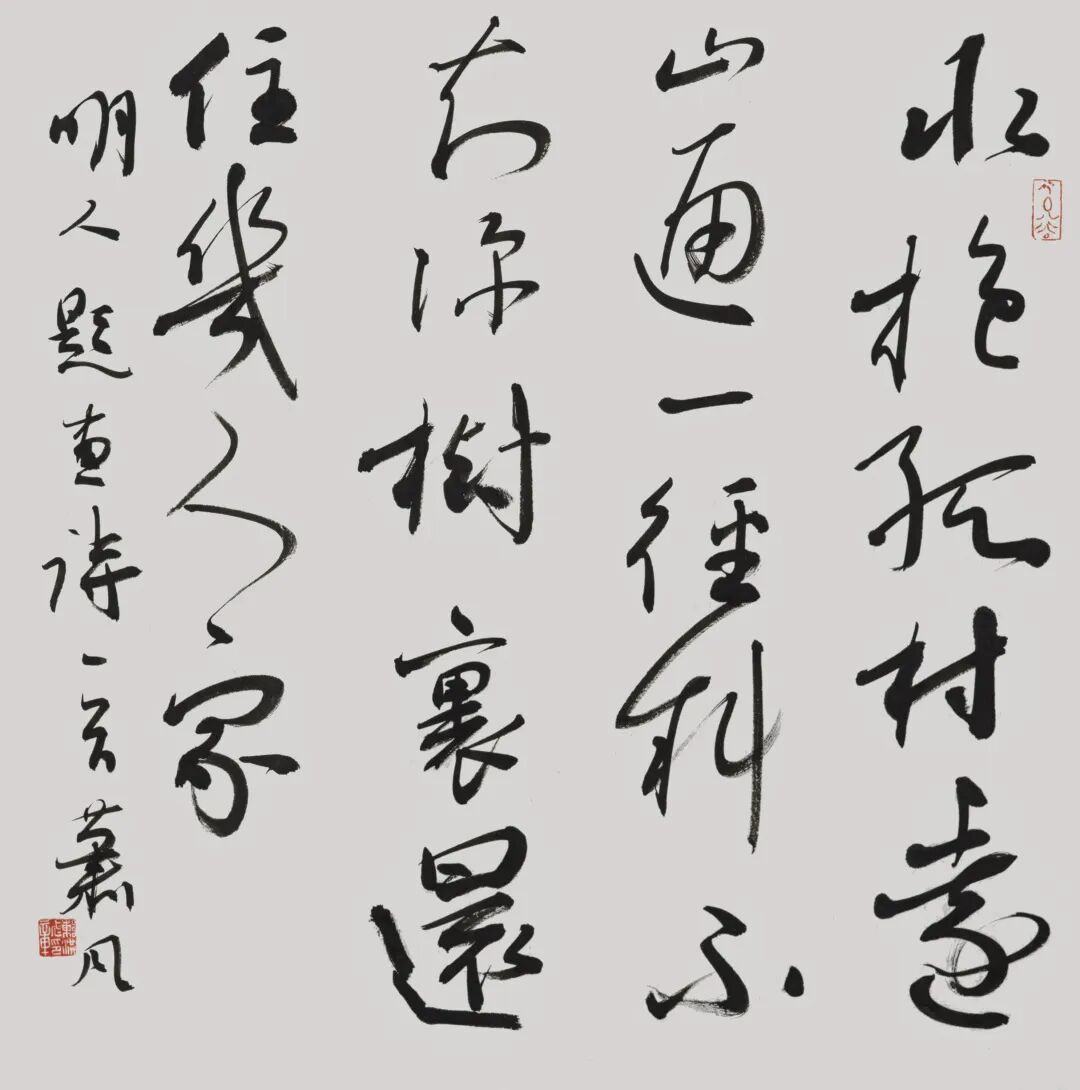 水抱孤村遠
山通一徑斜不
知深樹裏還
住幾人家
明人題畫詩一首蕭